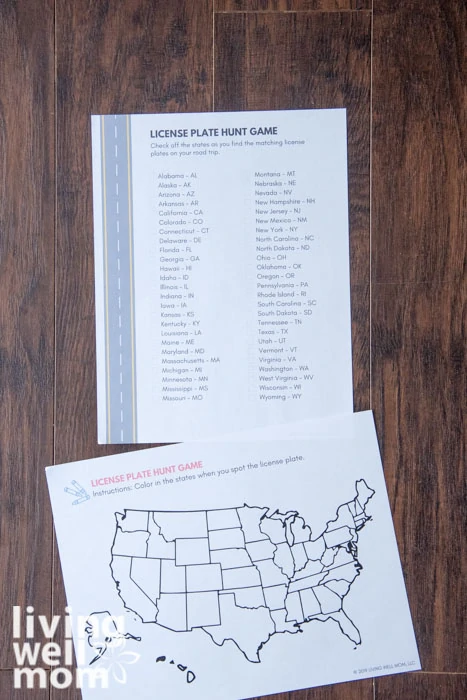 LICENSE PLATE HUNT GAME
Check off the states as you find the matching license
plates on your road trip.
Alabama - AL
Alaska - AK
Arizona - AZ
Arkansas - AR
California - CA
Colorado - CO
Connecticut - CT
Delaware - DE
Florida - FL
Georgia - GA
Hawaii - HI
Idaho - ID
Illinois - IL
Indiana - IN
Iowa - IA
Kansas - KS
Kentucky - KY
Louisiana - LA
Maine - ME
Maryland - MD
Massachusetts - MA
Michigan - MI
Minnesota - MN
Mississippi - MS
Missouri - MO
Montana - MT
Nebraska - NE
Nevada - NV
New Hampshire - NH
New Jersey - NJ
New Mexico - NM
New York - NY
North Carolina - NC
North Dakota - ND
Ohio - OH
Oklahoma - OK
Oregon - OR
Pennsylvania - PA
Rhode Island - RI
South Carolina - SC
South Dakota - SD
Tennessee - TN
Texas - TX
Utah - UT
Vermont - VT
Virginia - VA
Washington - WA
West Virginia - WV
Wisconsin - WI
Wyoming - WY
LICENSE PLATE HUNT GAME
Instructions: Color in the states when you spot the license plate.
LIVING WELL MOM, LLC
living
well
mom